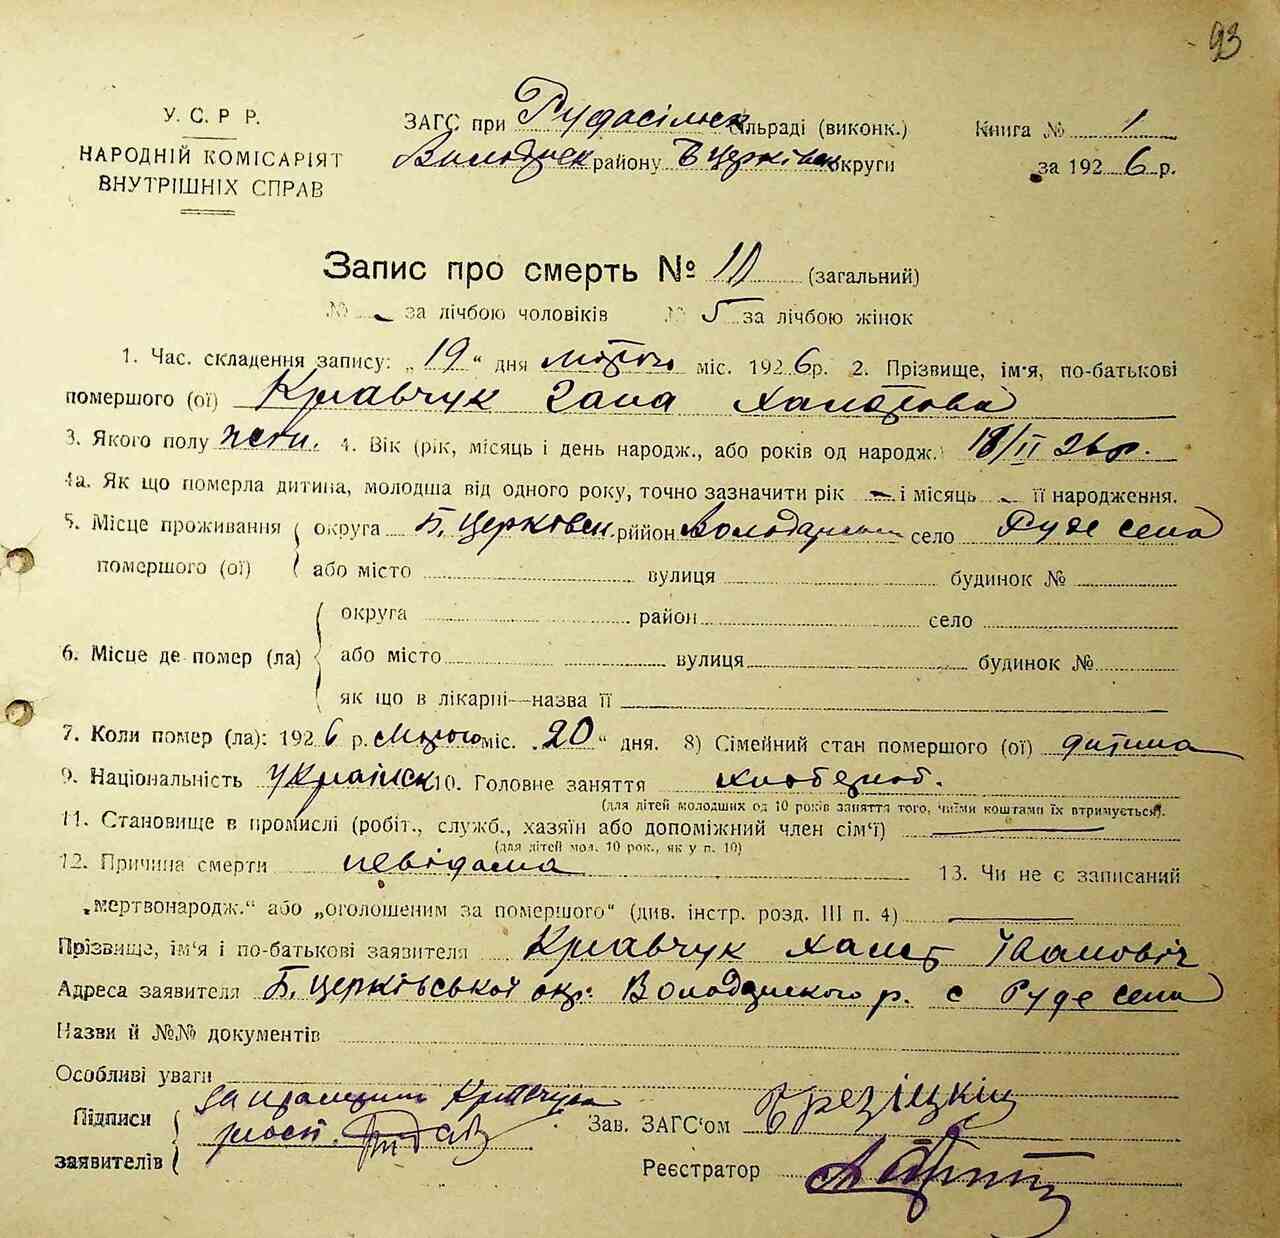 93
У. С. Р Р.
НАРОДНІЙ КОМІСАРІЯТ
ВНУТРІШНІХ СПРАВ
ЗАГС при Рудосільск сільраді (виконк.)
Володарск району Б Церківск округи
Книга № 1
за 1926 р.
Запис про смерть № 10 (загальний)
№ - за лічбою чоловіків № 5 за лічбою жінок
1. Час. складення запису: „19“ дня лютого міс. 1926 р. 2. Прізвище, ім'я, по-батькові
помершого (ої) Кравчук
3. Якого полу жін. 4. Вік (рік, місяць і день народж., або років од народж.) 18/II 26 р.
4а. Як що померла дитина, молодша від одного року, точно зазначити рік - і місяць - її народження.
5. Місце проживання помершого (ої) округа Б. Церковск. рийон Володарськ село Руде села
або місто вулиця будинок №
6. Місце де помер (ла) округа район село
або місто вулиця будинок №
як що в лікарні—назва її
7. Коли помер (ла): 1926 р. лютого міс. „20“ дня. 8) Сімейний стан помершого (ої) дитина
9. Національність Українск 10. Головне заняття хлібороб.
(для дітей молодших од 10 років заняття того, чиїми коштами їх втримується).
11. Становище в промислі (робіт., служб., хазяїн або допоміжний член сім'ї) —
(для дітей мол. 10 рок., як у п. 10)
12. Причина смерти невідома 13. Чи не є записаний
„мертвонародж.“ або „оголошеним за помершого“ (див. інстр. розд. III п. 4) —
Прізвище, ім'я і по-батькові заявителя Кравчук Іванович
Адреса заявителя Б. Церківської окр. Володарського р. с Руде села
Назви й №№ документів
Особливі уваги
Підписи заявителів Кравчука
Зав. ЗАГС'ом
Реєстратор